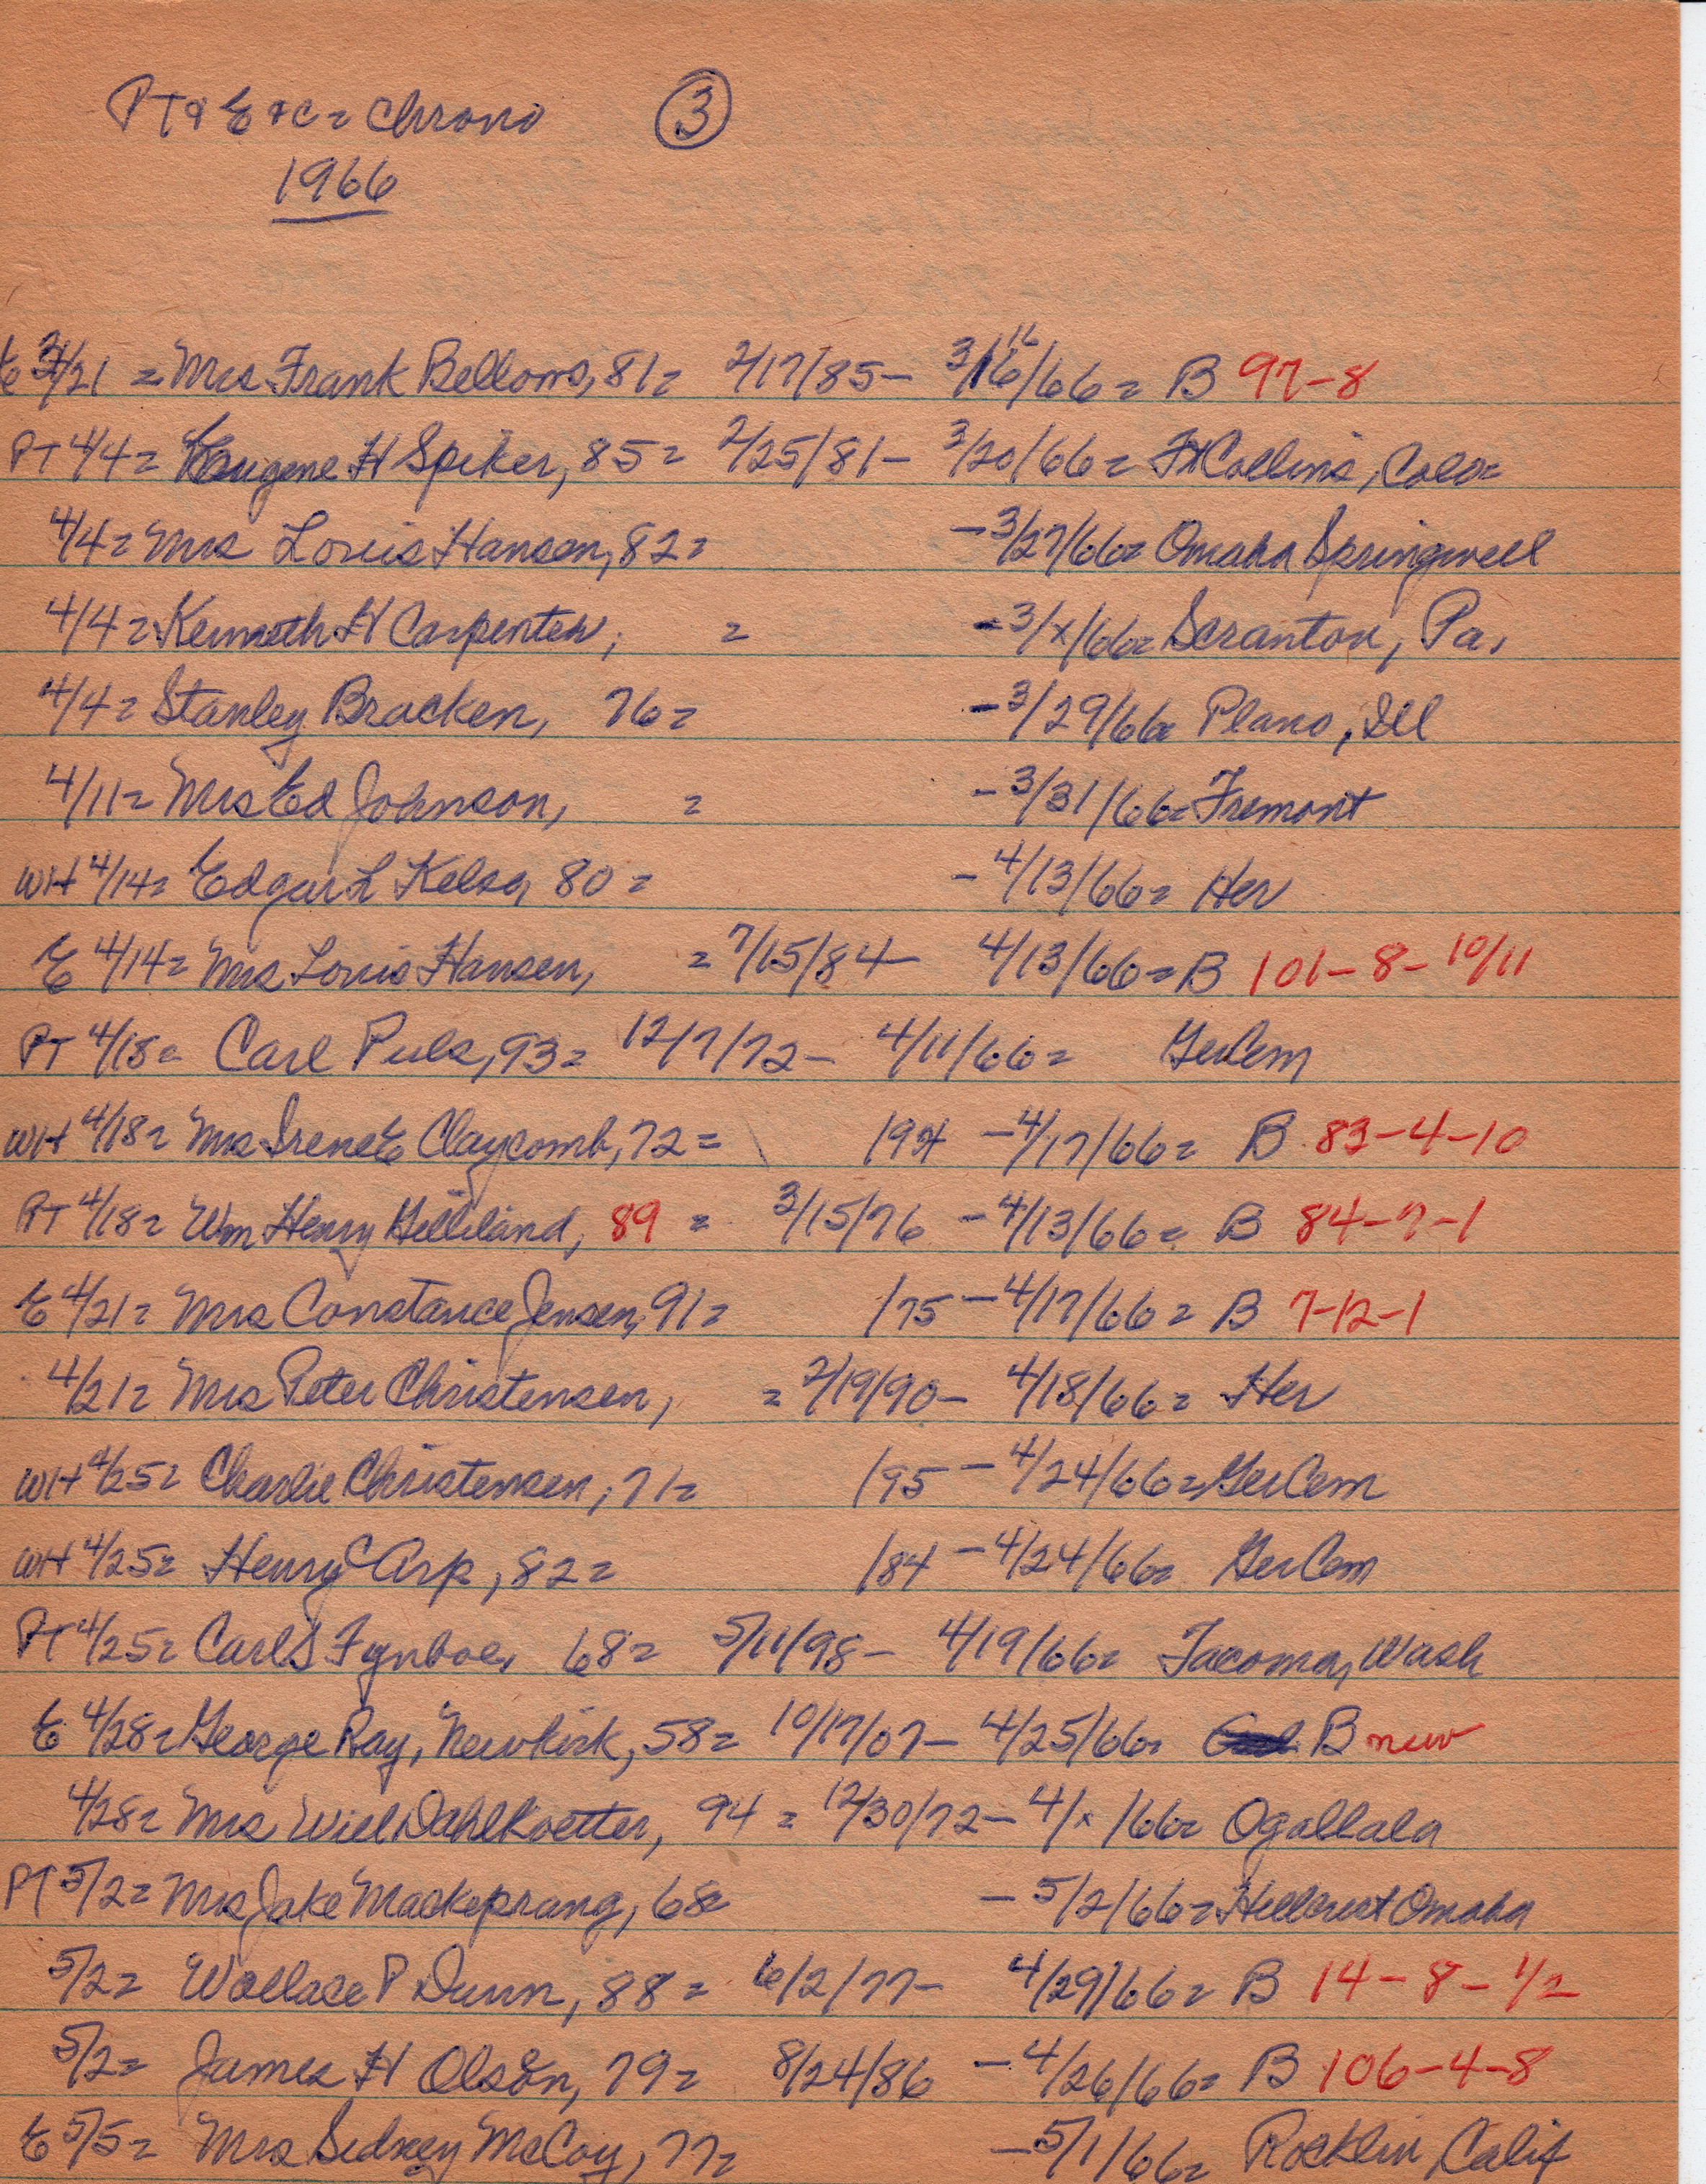 PT & E & C = Chrono ③
1966
E 3/21 = Mrs Frank Bellows, 81 = 2/17/85 - 3/16/66 = B 97-8
PT 4/4 = Eugene H Spiker, 85 = 2/25/81 - 3/20/66 = Ft Collins, Colo =
4/4 = Mrs Louis Hansen, 82 = - 3/27/66 = Omaha Springwell
4/4 = Kenneth H Carpenter, = - 3/x/66 = Scranton, Pa.
4/4 = Stanley Bracken, 76 = - 3/29/66 = Plano, Ill
4/11 = Mrs Ed Johnson, = - 3/31/66 = Fremont
WH 4/14 = Edgar L Kelso, 80 = - 4/13/66 = Her
E 4/14 = Mrs Louis Hansen, = 7/15/84 - 4/13/66 = B 101-8-10/11
PT 4/18 = Carl Puls, 93 = 12/7/72 - 4/11/66 = GerCem
WH 4/18 = Mrs Irene E Claycomb, 72 = /94 - 4/17/66 = B 83-4-10
PT 4/18 = Wm Henry Gilliland, 89 = 3/15/76 - 4/13/66 = B 84-7-1
E 4/21 = Mrs Constance Jensen, 91 = /75 - 4/17/66 = B 7-12-1
4/21 = Mrs Peter Christensen, = 2/19/90 - 4/18/66 = Her
WH 4/25 = Charlie Christensen, 71 = /95 - 4/24/66 = GerCem
WH 4/25 = Henry C Arp, 82 = /84 - 4/24/66 = GerCem
PT 4/25 = Carl S Fynboe, 68 = 5/11/98 - 4/19/66 = Tacoma, Wash
E 4/28 = George Ray, Newkirk, 58 = 10/17/07 - 4/25/66 = B new
4/28 = Mrs Will Dahlkoetter, 94 = 12/30/72 - 4/x/66 = Ogallala
PT 5/2 = Mrs Jake Mackeprang, 68 = - 5/2/66 = Hillcrest Omaha
5/2 = Wallace P Dunn, 88 = 6/2/77 - 4/29/66 = B 14-8-1/2
5/2 = James H Olson, 79 = 8/24/86 - 4/26/66 = B 106-4-8
E 5/5 = Mrs Sidney McCoy, 77 = - 5/1/66 = Rocklin, Calif